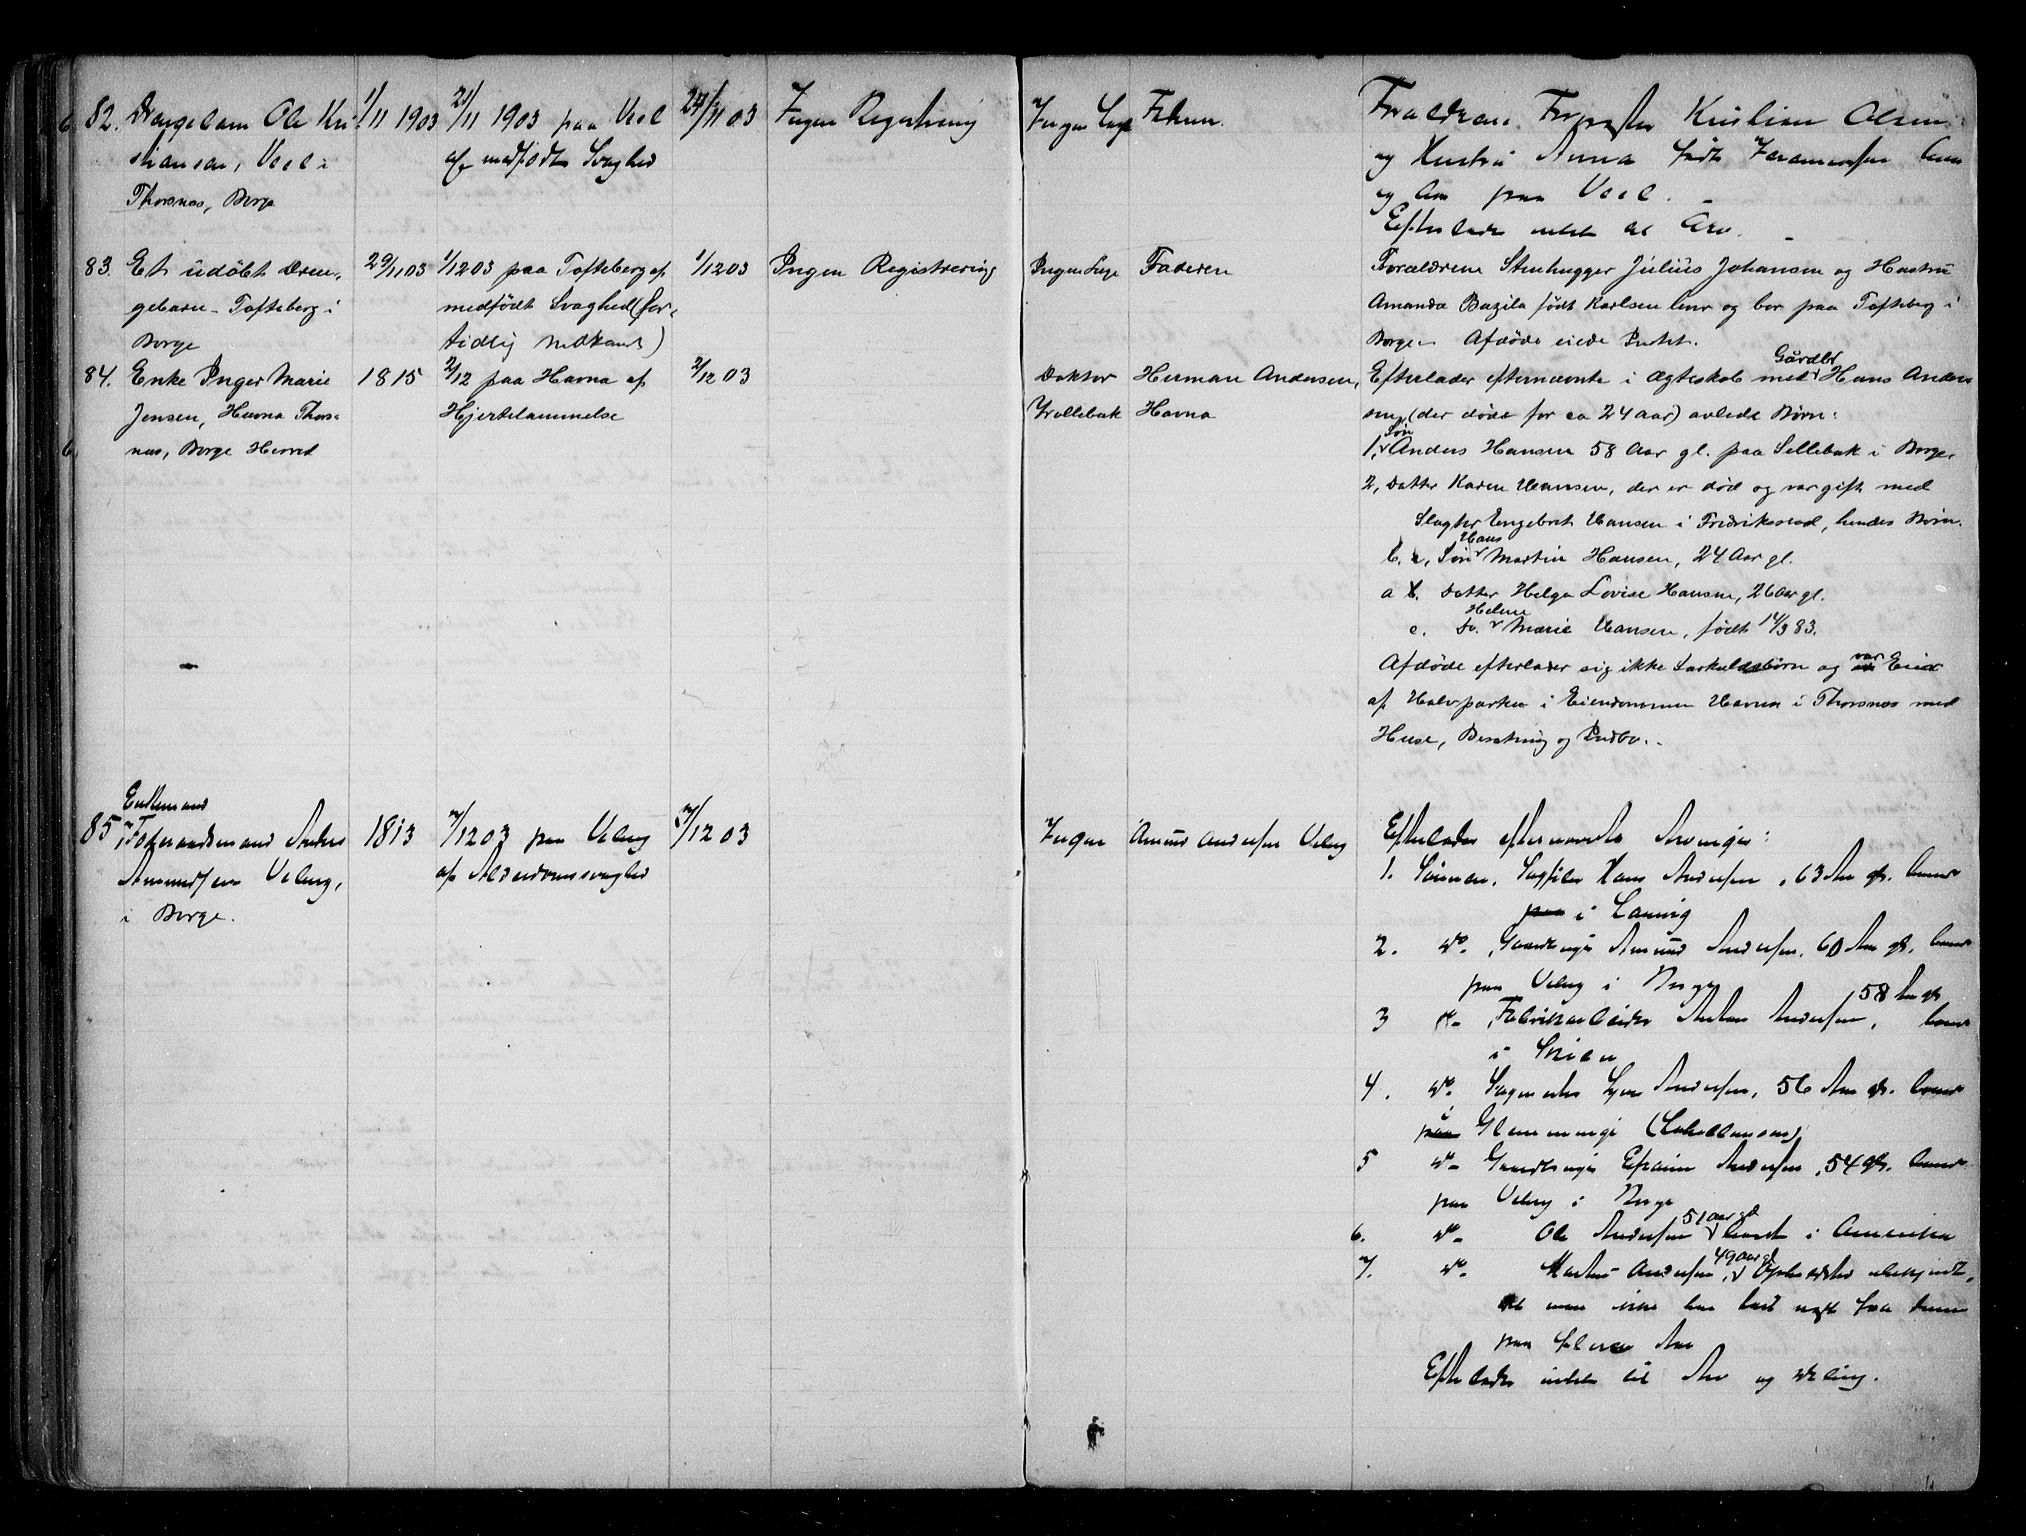 82. Drengebarn Ole Kri-
stiansen, Vesl i
Thorsnes, Borge
1/11 1903
21/11 1903 paa Vesl
af medfødt Svaghed
24/11 03
Ingen Registrering
Ingen Læge
Faderen.
Forældrene Kristian Olsen
og Hustru Anna født lever
og bor paa Vesl.
Efterlader intet til Arv.
83. Et udøbt Dren-
gebarn - Tofteberg i
Borge
29/11 03
1/12 03 paa Tofteberg af
medfødt Svaghed (for-
tidlig Nedkomst)
1/12 03
Ingen Registrering
Ingen Læge
Faderen
Forældrene Stenhugger Julius Johansen og Hustru
Amanda Bazila født Karlsen lever og bor paa Tofteberg i
Borge. Afdøde eiede Intet.
84. Enke Inger Marie
Jensen, Havna Thors-
nes, Borge Herred
1815
2/12 paa Havna af
Hjertelammelse
2/12 03
Doktor
Trollebæk
Herman Andersen,
Havna
Gårdbr
Efterlader efternævnte i Ægteskab med Hans Ander-
sen, (der døde for ca 24 aar) avlede Børn:
Søn
1, Anders Hansen 58 Aar gl. paa Sellebak i Borge.
2, Datter Karen Hansen, der er død og var gift med
Slagter Engebret Hansen i Fredriksstad, hendes Børn.
Hans
b. a, Søn Martin Hansen, 24 Aar gl.
a b. Datter Helga Lovise Hansen, 26 aar gl.
Helene
c. Do. Marie Hansen, født 14/3 83.
Afdøde efterlader sig ikke Særkuldsbørn og var Eier
af Halvparten i Eiendommen Havna i Thorsnes med
Huse, Besætning og Indbo.
Enkemand
85. Føderaadsmand Anders
Amundsen Velsrg,
i Borge.
1813
7/12 03 paa
af Alderdomssvaghed
7/12 03
Ingen
Amund Andersen
Efterlader efternævnte Arvinger:
1. Sønnen, Hans Andersen, 63 Aar gl. boende
paa i Laurvig
2. do. Gaardbruger Amund Andersen, 60 Aar gl. boende
paa i Borge
58 Aar gl
3 do. Fabrikarbeider Anton Andersen, boende
i Skien
4. do. Andersen, 56 Aar gl. boende
i
paa Glemminge
5 do. Gaardbruger Efraim Andersen, 54 gl. boende
paa i Borge
51 aar gl
6. do. Ole Andersen boende i Amerika
49 aar gl
7. do. Andersen, Opholdssted ubekjendt,
da man ikke har hørt noget fra ham
paa flere Aar
Efterlader intet til Arv og Deling.